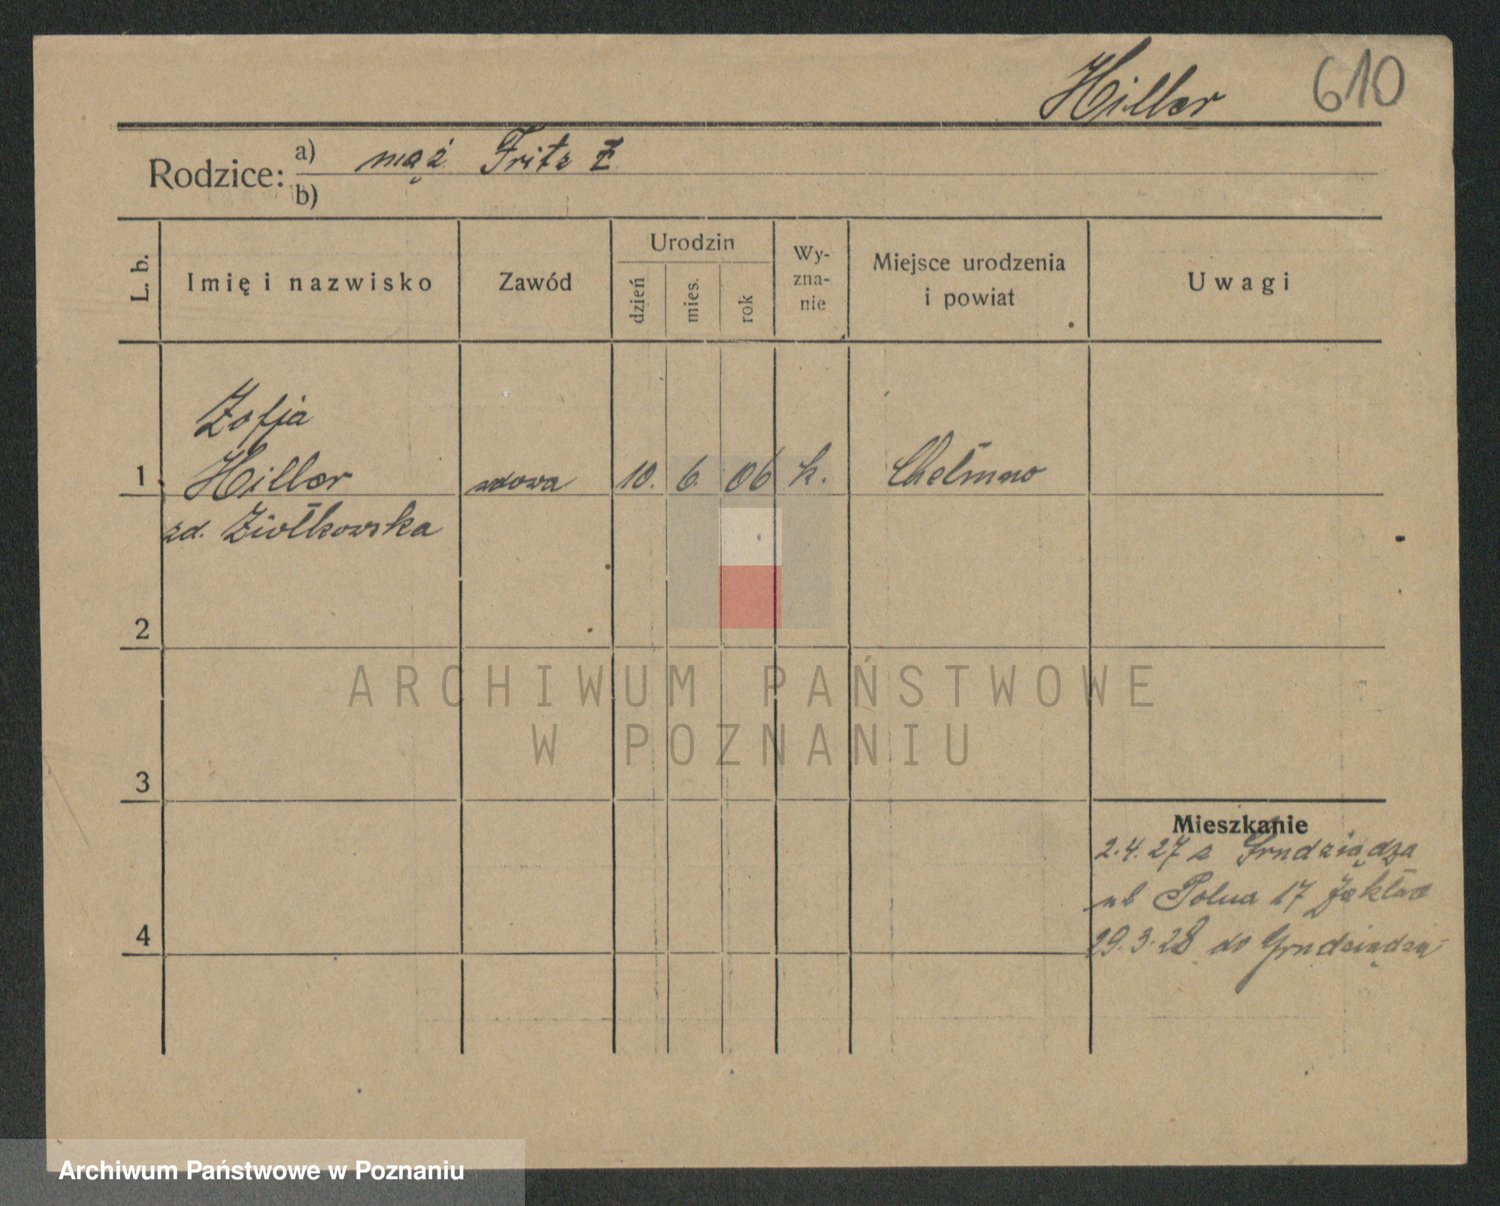 Hiller 610
Rodzice: a) mąż Fritz
b)
L. b.
Imię i nazwisko
Zawód
Urodzin
dzień
mies.
rok
Wy-
zna-
nie
Miejsce urodzenia
i powiat
Uwagi
Zofja
1 Hiller wdowa 10. 6. 06 k. Chełmno
zd. Ziółkowska
2
3
4
Mieszkanie
2.4.27 z Grudziądza
ul Polna 17 Zakład
29.3.28 do Grudziądza
ARCHIWUM PAŃSTWOWE
W POZNANIU
Archiwum Państwowe w Poznaniu